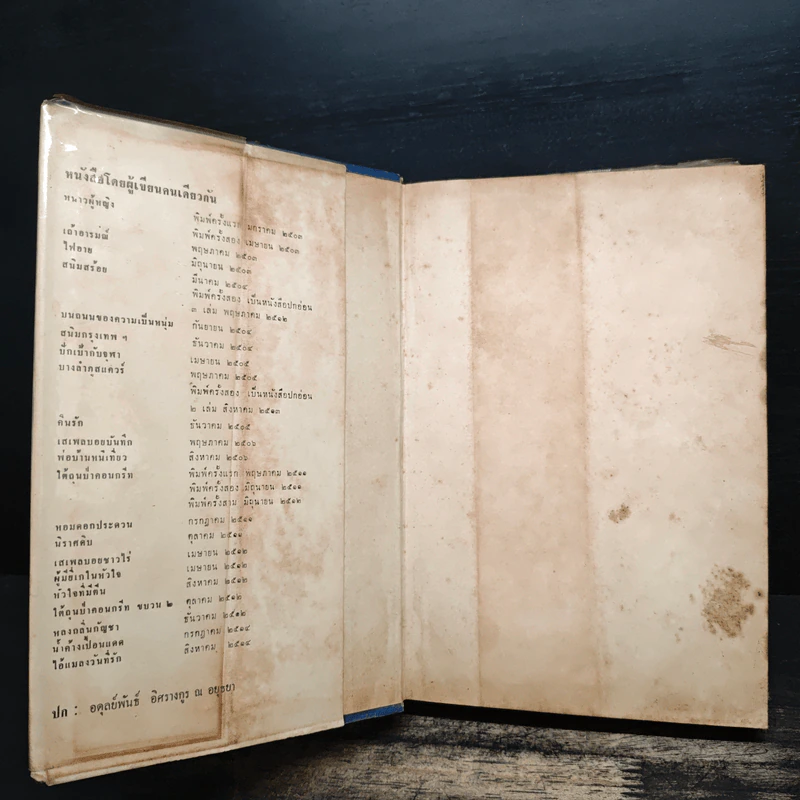 หนังสือโดยผู้เขียนคนเดียวกัน
หนาวผู้หญิง พิมพ์ครั้งแรก มกราคม ๒๕๐๓
พิมพ์ครั้งสอง เมษายน ๒๕๐๓
เถ้าอารมณ์ พฤษภาคม ๒๕๐๓
ไฟอาย มิถุนายน ๒๕๐๓
สนิมสร้อย มีนาคม ๒๕๐๔
พิมพ์ครั้งสอง เป็นหนังสือปกอ่อน
๓ เล่ม พฤษภาคม ๒๕๑๒
บนถนนของความเป็นหนุ่ม กันยายน ๒๕๐๔
สนิมกรุงเทพ ฯ ธันวาคม ๒๕๐๔
บักเป้ากับจุฬา เมษายน ๒๕๐๕
บางลำภูสแควร์ พฤษภาคม ๒๕๐๕
พิมพ์ครั้งสอง เป็นหนังสือปกอ่อน
๒ เล่ม สิงหาคม ๒๕๑๓
คืนรัก ธันวาคม ๒๕๐๕
เสเพลบอยบันทึก พฤษภาคม ๒๕๐๖
พ่อบ้านหนีเที่ยว สิงหาคม ๒๕๐๖
ใต้ถุนป่าคอนกรีท พิมพ์ครั้งแรก พฤษภาคม ๒๕๑๑
พิมพ์ครั้งสอง มิถุนายน ๒๕๑๑
พิมพ์ครั้งสาม มิถุนายน ๒๕๑๒
หอมดอกประดวน กรกฎาคม ๒๕๑๑
นิราศดิบ ตุลาคม ๒๕๑๑
เสเพลบอยชาวไร่ เมษายน ๒๕๑๒
ผู้มียี่เกในหัวใจ เมษายน ๒๕๑๒
หัวใจที่มีตีน สิงหาคม ๒๕๑๒
ใต้ถุนป่าคอนกรีท ขบวน ๒ ตุลาคม ๒๕๑๒
หลงกลิ่นกัญชา ธันวาคม ๒๕๑๒
น้ำค้างเปื้อนแดด กรกฎาคม ๒๕๑๔
ไอ้แมลงวันที่รัก สิงหาคม ๒๕๑๔
ปก : อดุลย์พันธ์ อิศรางกูร ณ อยุธยา